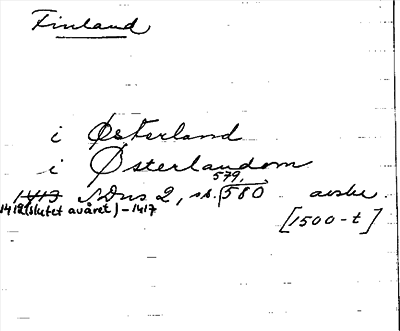 Finland
i Østerland
i Østerlandom
579,
1413 SDns 2, s. 580 avskr.
1412 (slutet av året) - 1417
[1500-t]